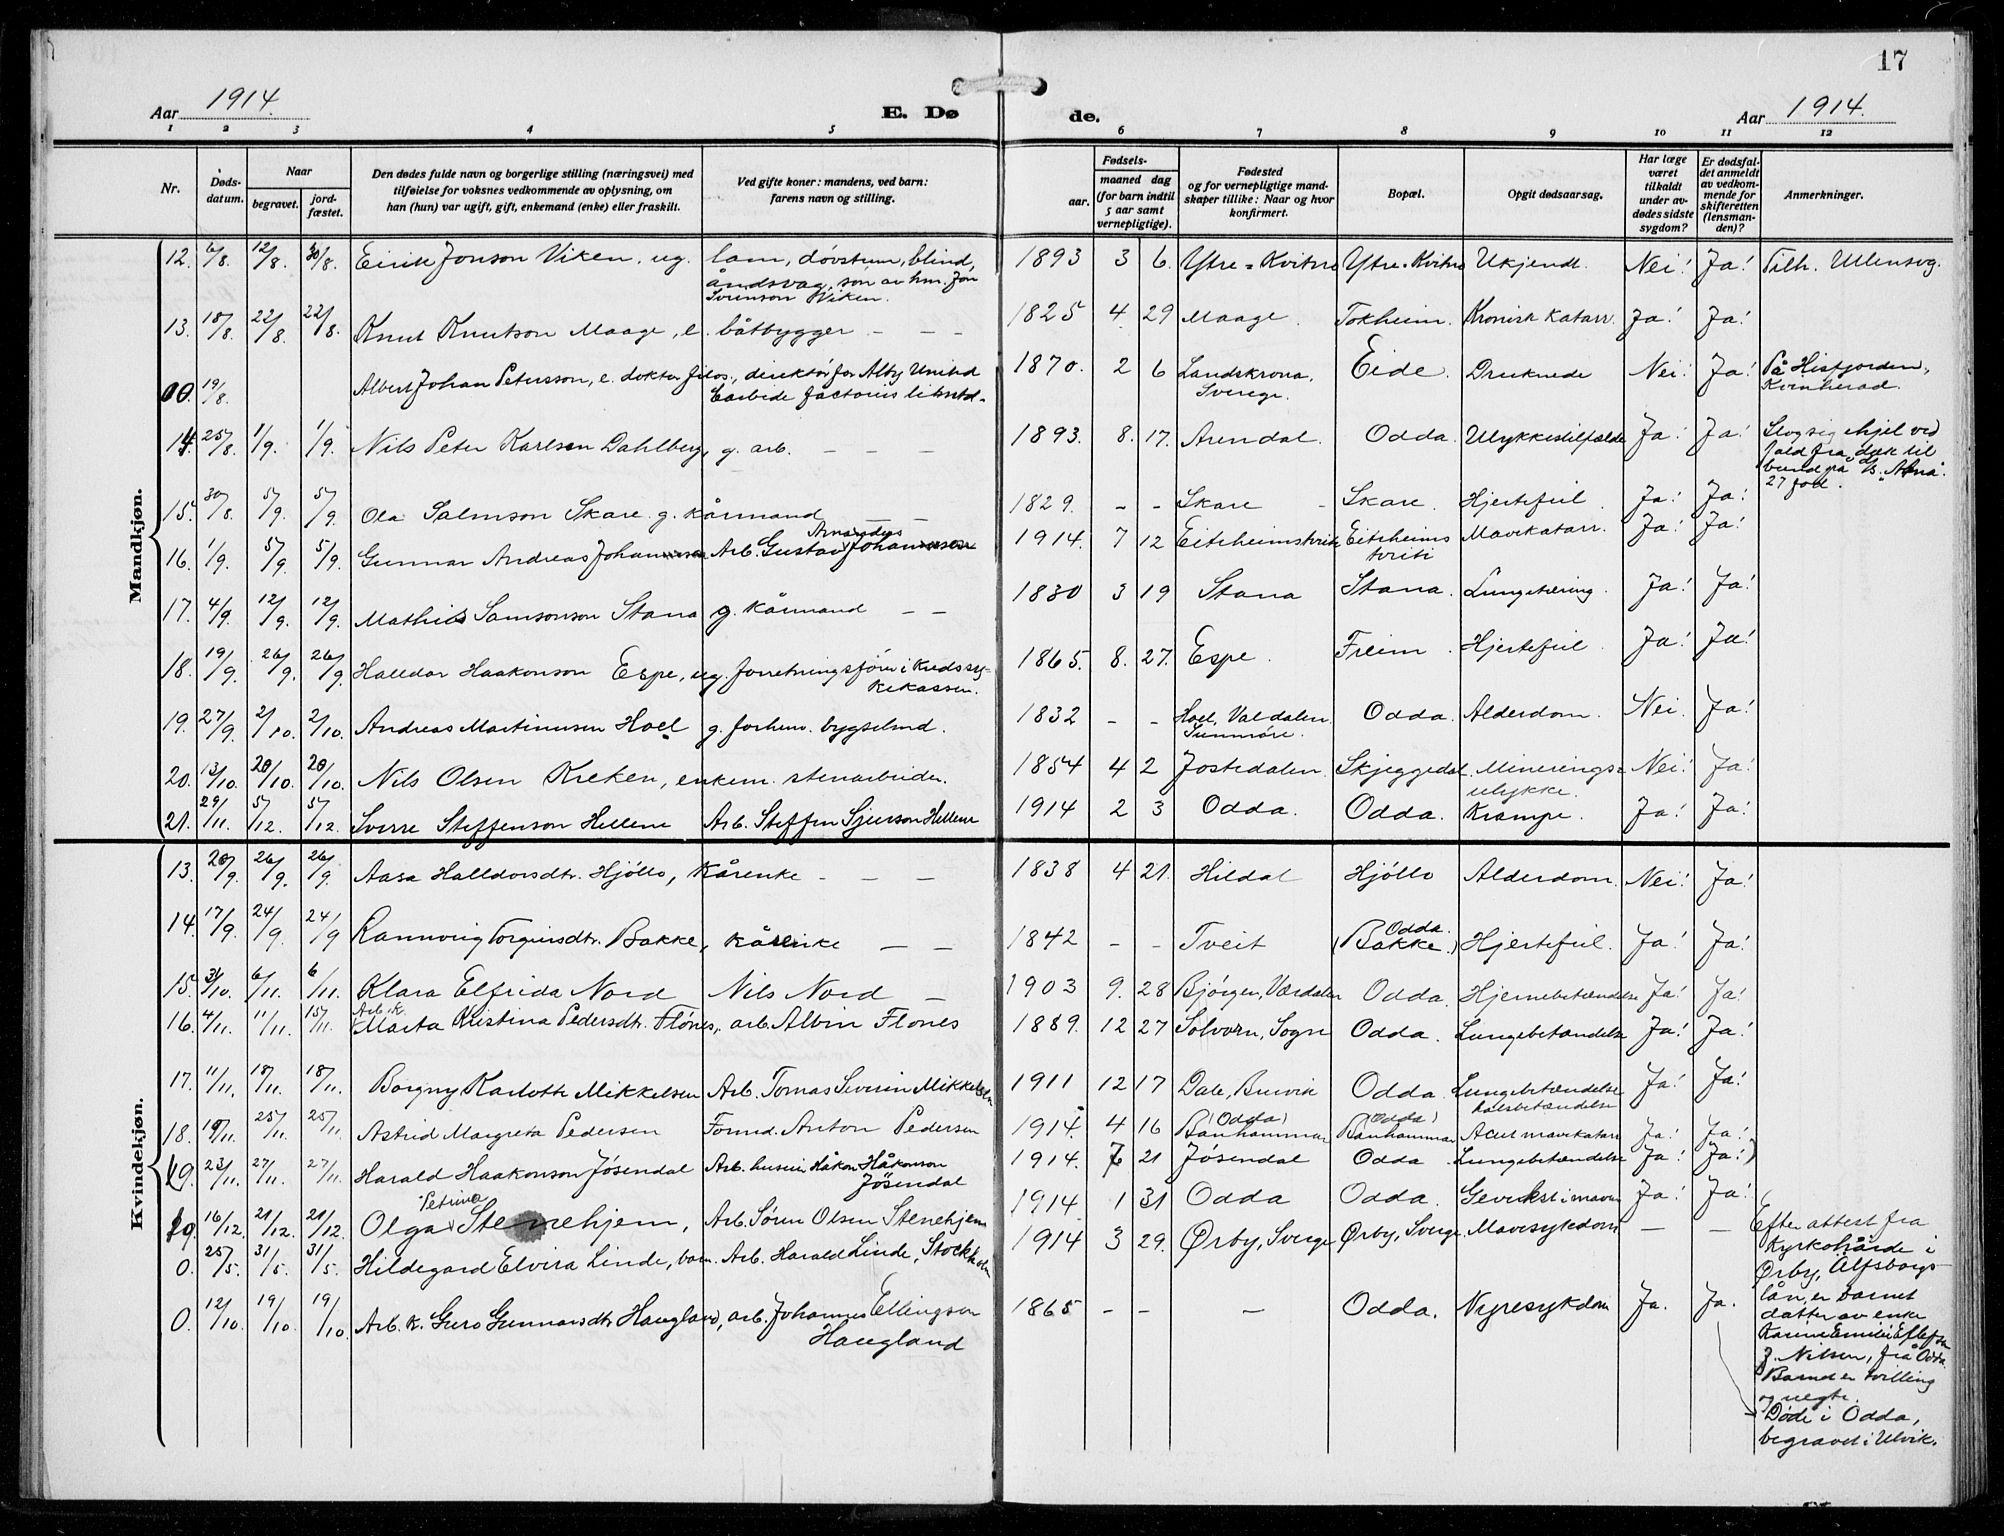 17
Aar 1914. E. Dø de. Aar 1914.
1 2 3 4 5 6 7 8 9 10 11 12
Nr. Døds-datum. Naar begravet. jord-fæstet. Den dødes fulde navn og borgerlige stilling (næringsvei) med tilføielse for voksnes vedkommende av oplysning, om han (hun) var ugift, gift, enkemand (enke) eller fraskilt. Ved gifte koner: mandens, ved barn: farens navn og stilling. Fødsels- aar. maaned dag (for barn indtil 5 aar samt vernepligtige). Fødested og for vernepligtige mandskaper tillike: Naar og hvor konfirmert. Bopæl. Opgit dødsaarsag. Har læge været tilkaldt under avdødes sidste sygdom? Er dødsfaldet anmeldt av vedkommende for skifteretten (lensmanden)? Anmerkninger.
Mandkjøn.
12. 6/8. 12/8. 30/8. Eirik Jonson Viken, ug. lam, døvstum, blind, åndsvag, søn av hm. Jon Svenson Viken. 1893 3 6. Ytre-Kvitno Ytre-Kvitno Ukjendt. Nei! Ja! Tilh. Ullensvg.
13. 18/8. 22/8. 22/8. Knut Knutson Maage, e. båtbygger – – – 1825 4 29 Maage. Tokheim. Kronisk katarr. Ja! Ja!
00. 19/8. Albert Johan Petersson, e. doktor filos., direktør for Alby United Carbide factories limtd. 1870. 2 6 Landskrona, Sverige. Eide. Druknede Nei! Ja! På Hisfjorden, Kvinherad.
14. 25/8. 1/9. 1/9. Nils Peter Karlsen Dahlberg, g. arb. – – – 1893. 8. 17. Arendal. Odda. Ulykkestilfælde Ja! Ja! Slog sig ihjel ved fald fra dæk til bund på D/S. "Anna". 27 fod.
15. 30/8. 5/9. 5/9. Ola Salmson Skare g. kårmand – – 1829. – – Skare – Skare. Hjertefeil. Ja! Ja!
16. 1/9. 5/9. 5/9. Gunnar Andreas Johannesen Arb. Gustav Johannesen 1914. 7 12 Eitrheimstveit Eitrheims tveiti Mavekatarr. Ja! Ja!
17. 4/9. 12/9. 12/9. Mathias Samsonson Stana g. kårmand – – 1830 3 19 Stana Stana. Lungetæring. Ja! Ja!
18. 19/9. 26/9. 26/9. Halldor Haakonson Espe, ug. forretningsfører i kredssykekassen. 1865. 8. 27. Espe. Freim. Hjertefeil Ja! Ja!
19. 27/9. 2/10. 2/10. Andreas Martinusen Hoel g. forhenv. bygselmd. 1832 – – Hoel, Valdalen, Sunmøre. Odda. Alderdom. Nei. Ja!
20. 13/10. 20/10. 20/10. Nils Olsen Kreken, enkem. stenarbeider. 1854 4 2 Jostedalen. Skjeggedal. Minerings-ulykke. Nei! Ja!
21. 29/11. 5/12. 5/12. Sverre Steffenson Hellene Arb. Steffen Sjurson Hellene 1914 2 3 Odda. Odda. Krampe. Ja! Ja!
Kvindekjøn.
13. 20/9. 26/9. 26/9. Aasa Halldorsdtr. Hjøllo, kårenke – – – 1838 4 21. Hildal Hjøllo Alderdom. Nei! Ja!
14. 17/9. 24/9. 24/9 Rannveig Torgeirsdtr. Bakke, kårenke – – 1842 – – Tveit (Bakke) Odda. Hjertefeil. Ja! Ja!
15. 31/10. 6/11. 6/11. Klara Elfrida Nord Nils Nord – 1903 9. 28 Bjørgen, Værdalen Odda. Hjernebetændelse Ja! Ja!
16. 4/11. 11/11. 15/11. Arb.k. Marta Kristina Pedersdtr. Flones, arb. Albin Flones 1889. 12 27 Solvorn, Sogn Odda. Lungebetændelse Ja! Ja!
17. 11/11. 18/11. 18/11. Borgny Karlotte Mikkelsen Arb. Tomas Severin Mikkelsen 1911 12 17 Dale, Bruvik Odda. Lungebetændelse halsbetændelse Ja! Ja!
18. 19/11. 25/11. 25/11. Astrid Margreta Pedersen Formd. Anton Pedersen 1914. 4 16 (Odda) Banhammar (Odda) Banhammar Acut mavekatarr Ja! Ja!
(19. 23/11. 27/11. 27/11. Harald Haakonson Jøsendal Arb. Håkon Håkonson Jøsendal 1914. 6 21 Jøsendal Odda. Lungebetændelse Ja! Ja!)
19. 16/12. 21/12. 21/12. Olga Petrine Stenehjem, Arb. Søren Olsen Stenehjem 1914 1 31 Odda Odda. Gevekst i maven Ja! Ja!
0. 25/5. 31/5. 31/5. Hildegard Elvira Linde, barn. Arb. Harald Linde, Stockholm 1914 3 29. Ørby, Sverge Ørby, Sverge. Mavesykdom – – Efter attest fra Kyrkohärde i Ørby, Älfsborgs-län, er barnet datter av enke Karine Emilie f. Nilsen, frå Odda. Barnet er tvilling og uegte.
0. 12/10. 19/10. 19/10. Arb. k. Guro Gunnarsdtr Haugland, arb. Johannes Ellingsen Haugland 1865 – – – Odda. Nyresykdom Ja. Ja. Døde i Odda, begravet i Ulvik.